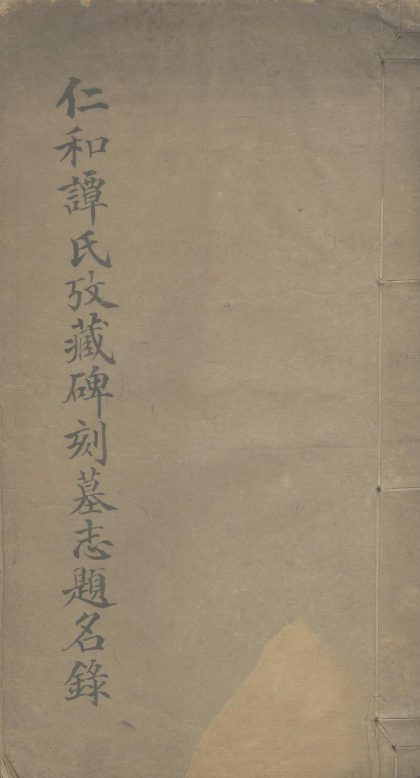 仁和譚氏攷藏碑刻墓志題名錄